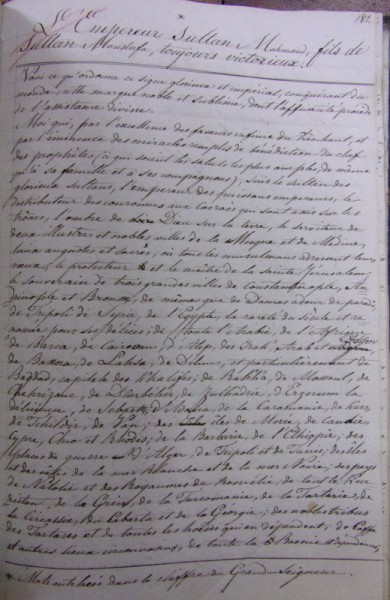 181.
*
L'Empereur Sultan Mahmoud, fils de
Sultan Moustafa, toujours victorieux.
Voici ce qu'ordonne ce signe glorieux et impérial, conquérant du
monde, cette marque noble et sublime, dont l'efficacité procède
de l'assistance divine.
Moi qui, par l'excellence des faveurs infinies du Très haut, et
par l'éminence des miracles remplis de bénédiction du chef
des prophètes, (à qui soient les saluts les plus amples, de même
qu'à sa famille et à ses compagnons), suis le sultan des
glorieux sultans, l'empereur des puissans empereurs, le
distributeur des couronnes aux Cosroès qui sont assis sur les
trônes, l'ombre de Dieu sur la terre, le serviteur de
deux illustres et nobles villes de la Mecque et de Médine,
lieux augustes et sacrés, où tous les musulmans adressent leurs
voeux, le protecteur et le maître de la sainte Jérusalem,
le souverain de trois grandes villes de Constantinople, An-
drinople et Brousse, de même que de Damas odeur de paradis,
de Tripoli de Syrie, de l'Egypte, la rareté du siècle et re-
nommée pour ses délices; de toute l'Arabie, de l'Afrique,
de Barca, de Cairovan, d'Alep, des Irak, Arabe et
de Bassora, de Lahsa, de Dilem, et particulièrement de
Bagdad, capitale des Khalifes; de Rakka, de Mossoul, de
Chehrezour, de Diarbekir, de Zulkadrie, d'Erzerum la
délicieuse, de Sebaste, d'Adana, de la Caramanie, de Kars,
de Tchildir, de Van; des îles de Morée, de Candie,
Cypre, Chio et Rhodes; de la Barbarie, de l'Ethiopie, des
places de guerre d'Alger, de Tripoli et de Tunis; des îles
et des côtes de la mer Blanche et de la mer Noire; des pays
de Natolie et des Royaumes de Roumélie, de tout le Kur-
distan, de la Grèce, de la Turcomanie, de la Tartarie, de
la Circassie, du Cabarta et de la Géorgie; des nobles tribus
des Tartares et de toutes les hordes qui en dépendent, de Caffa
et autres lieux circonvoisins, de toute la Bosnie et dépendances,
* Mots entrelacés dans le chiffre du Grand Seigneur.